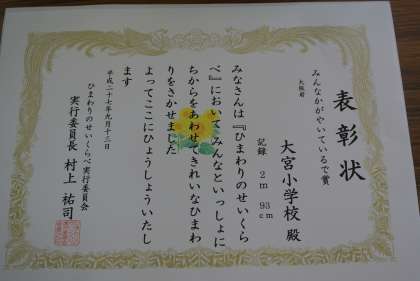 表彰状
みんなかがやいているで賞
大阪府
大宮小学校 殿
記録 2m 93cm
みなさんは『ひまわりのせいくら
べ』において みんなといっしょに
ちからをあわせてきれいなひまわ
りをさかせました
よってここにひょうしょういたし
ます
平成二十七年九月十三日
ひまわりのせいくらべ実行委員会
実行委員長 村上 祐司